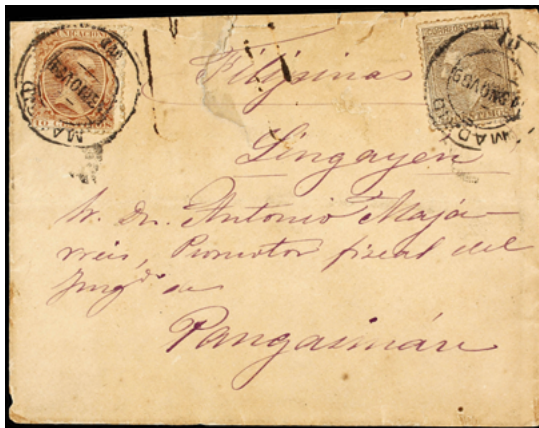 COMUNICACIONES
MADRID
MADRID
Filipinas
Lingayen
Sr. Dn. Antonio Majá-
rreis, Promotor fiscal del
Juzgdo de
Pangasinán